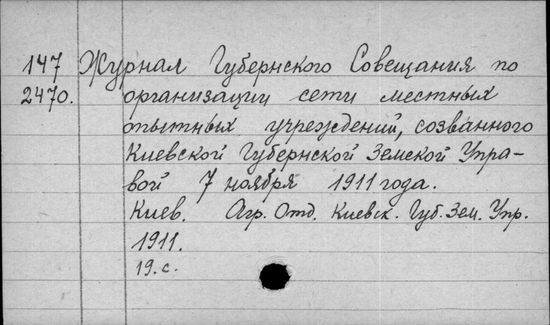 147 Журнал Губернского Совещания по
2470. организации сети местных
опытных учреждений, созванного
Киевской Губернской Земской Упра-
вой 7 ноября 1911 года.
Киев. Агр. Отд. Киевск. Губ. Зем. Упр.
1911.
19. с.